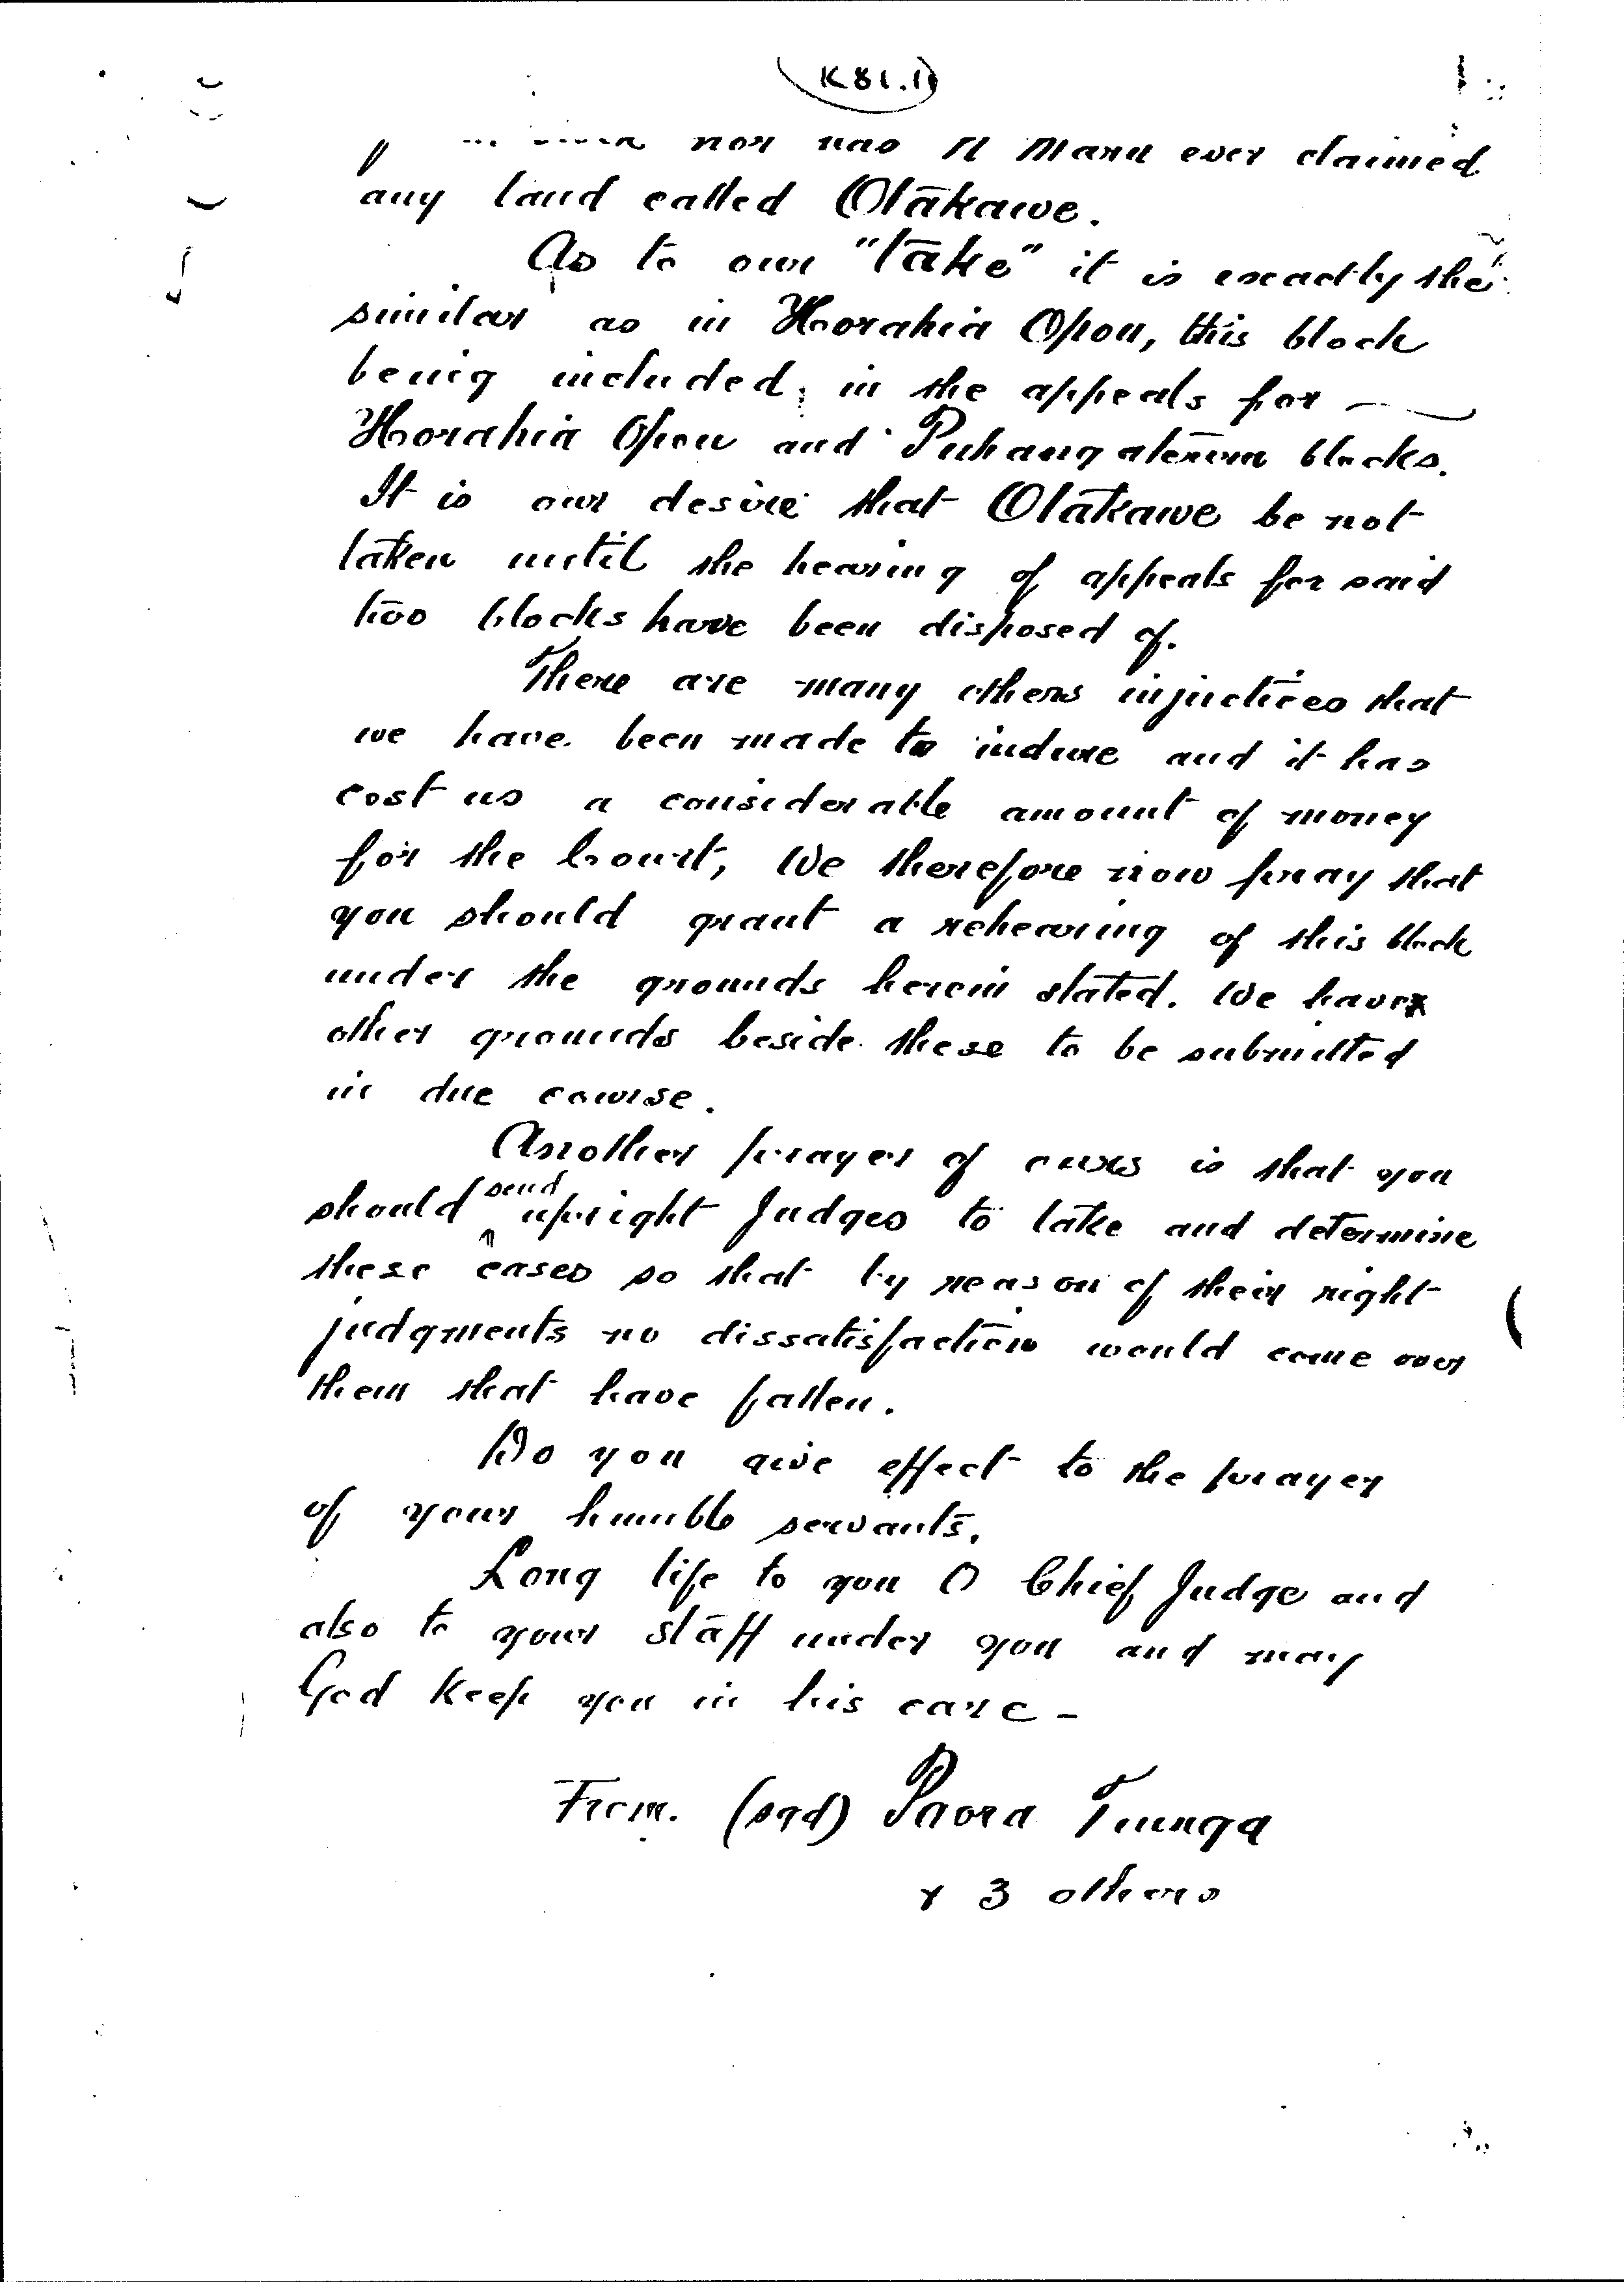 K81.11
nor has N Maru ever claimed
any land called Otakawe.
As to our "take" it is exactly the
similar as in Horahia Opou, this block
being included in the appeals for
Horahia Opou and Puhangateuru blocks.
It is our desire that Otakawe be not
taken until the hearing of appeals for said
two blocks have been disposed of.
There are many others injuctices that
we have been made to indure and it has
cost us a considerable amount of money
for the Court, We therefore now pray that
you should grant a rehearing of this block
under the grounds herein stated. We have
other grounds beside these to be submitted
in due course.
Another prayer of ours is that you
should send upright Judges to take and determine
these cases so that by reason of their right
judgments no dissatisfaction would come over
them that have fallen.
Do you give effect to the prayer
of your humble servants.
Long life to you O Chief Judge and
also to your staff under you and may
God keep you in his care -
From. (sgd) Paora Tiunga
& 3 others